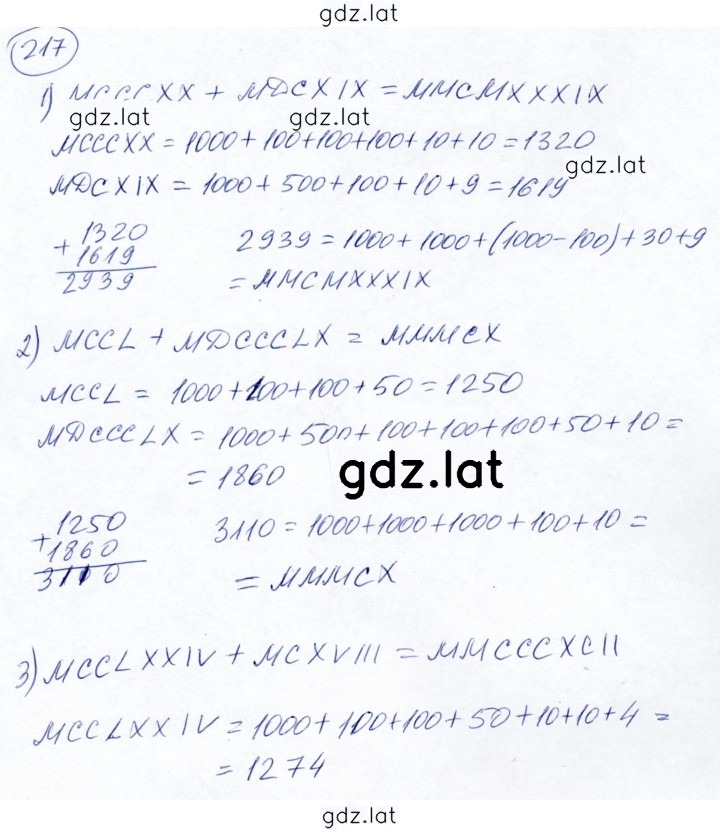 gdz.lat
217
1) MCCCXX + MDCXIX = MMCMXXXIX
gdz.lat gdz.lat
MCCCXX = 1000 + 100 + 100 + 100 + 10 + 10 = 1320
gdz.lat
MDCXIX = 1000 + 500 + 100 + 10 + 9 = 1619
+ 1320
1619
2939
2939 = 1000 + 1000 + (1000 - 100) + 30 + 9
= MMCMXXXIX
2) MCCL + MDCCCLX = MMMCX
MCCL = 1000 + 100 + 100 + 50 = 1250
MDCCCLX = 1000 + 500 + 100 + 100 + 100 + 50 + 10 =
= 1860
gdz.lat
+ 1250
1860
3110
3110 = 1000 + 1000 + 1000 + 100 + 10 =
= MMMCX
3) MCCLXXIV + MCXVIII = MMCCCXCII
MCCLXXIV = 1000 + 100 + 100 + 50 + 10 + 10 + 4 =
= 1274
gdz.lat